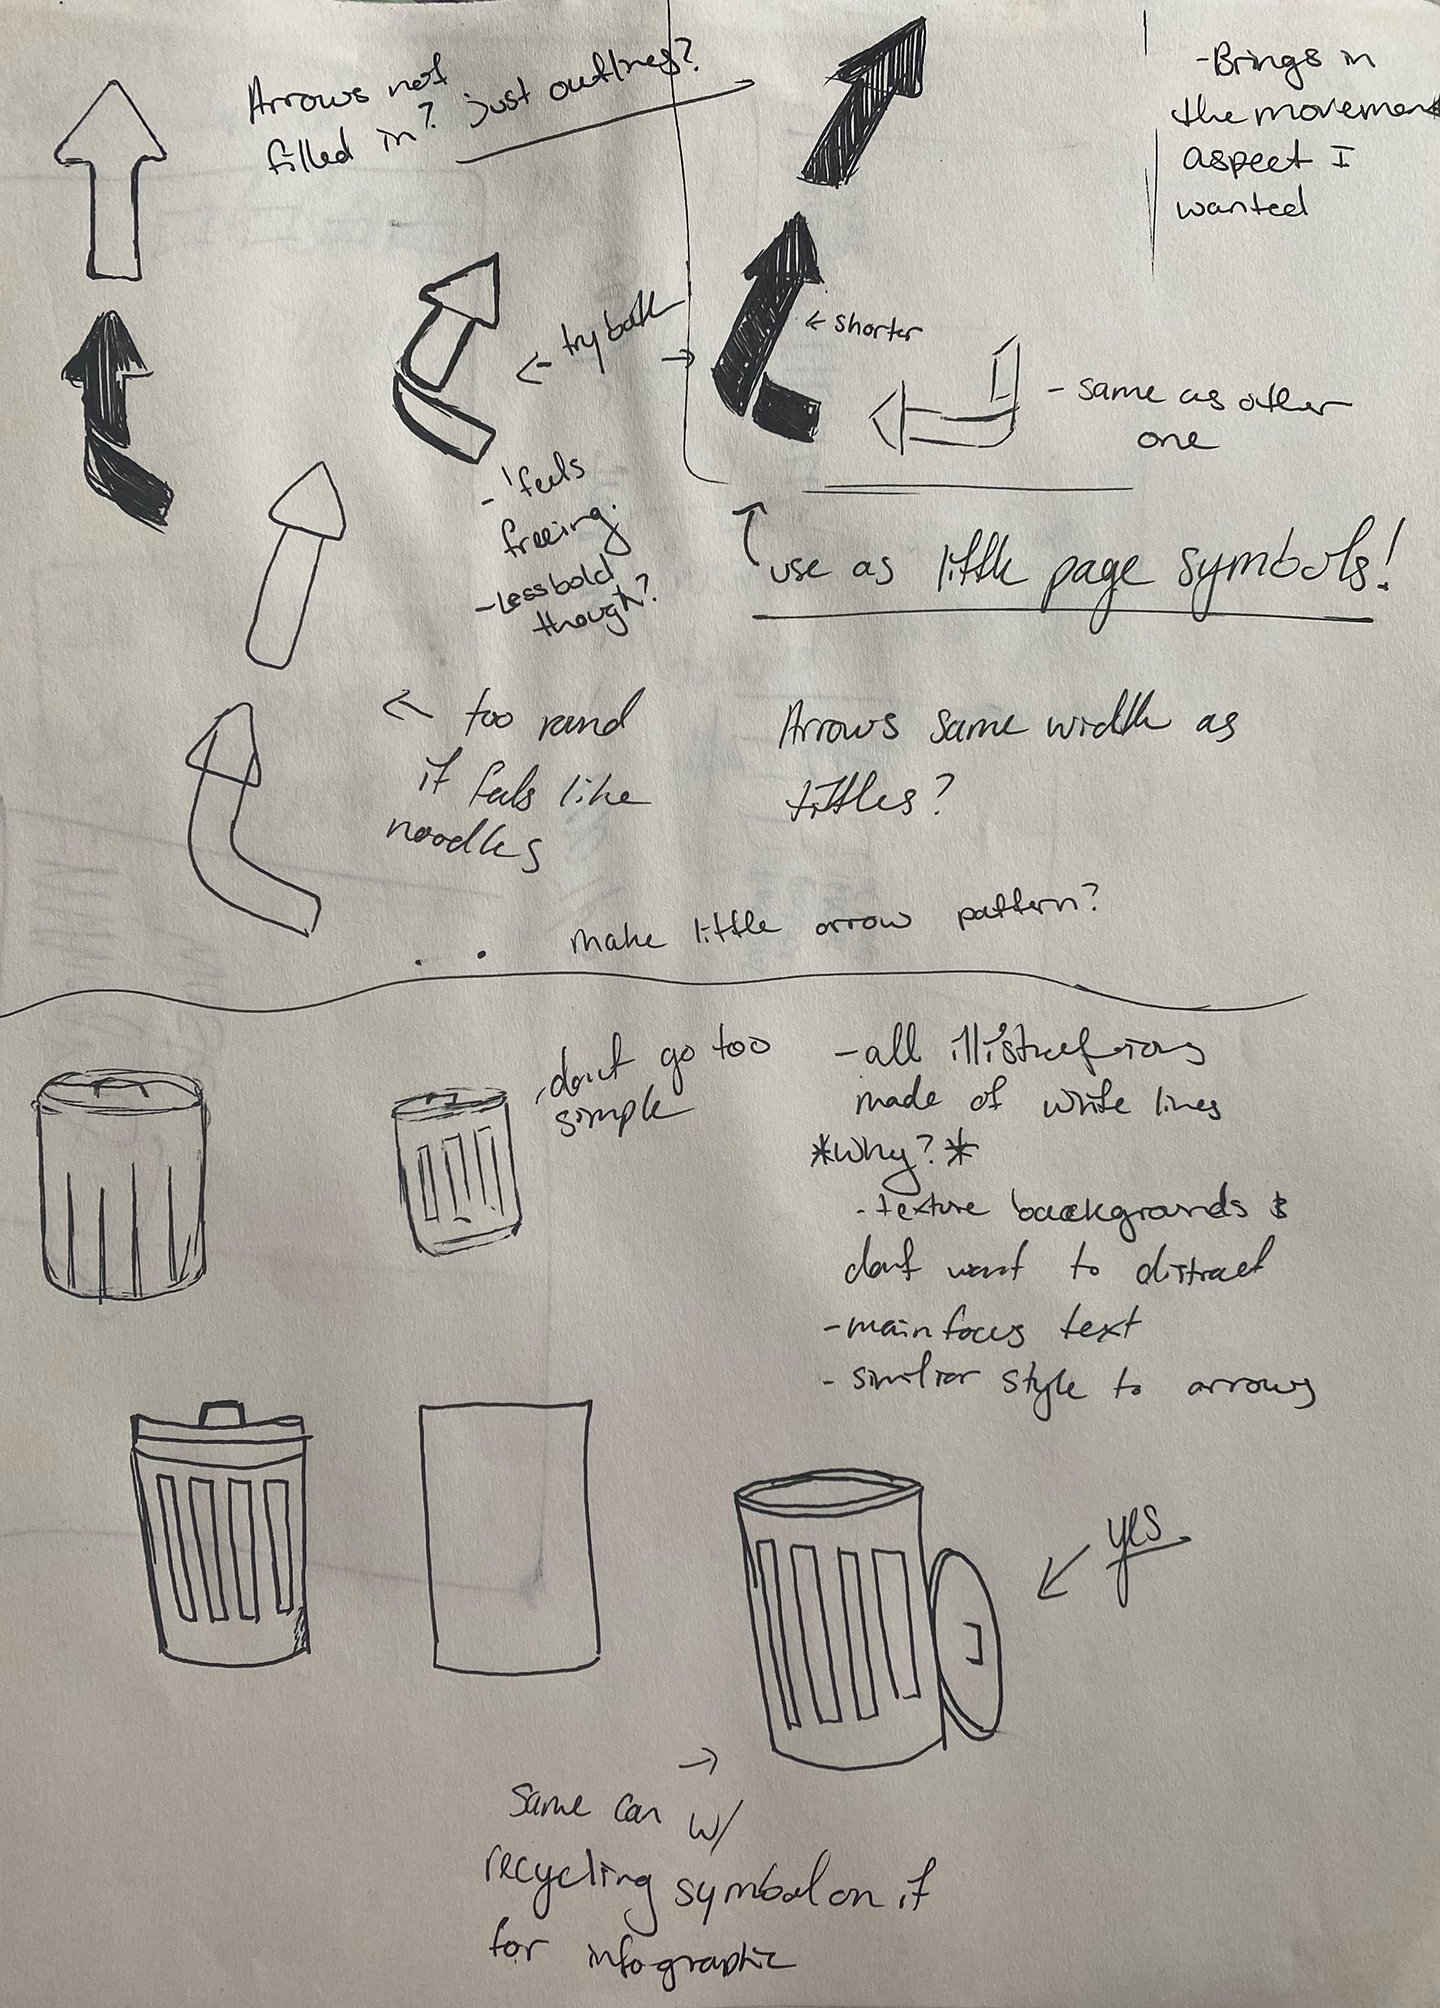 Arrows not
filled in? just outlines?
- Brings in
the movement
aspect I
wanted
← try both →
← shorter
- same as other
one
- feels
freeing.
- Less bold
though?
use as little page symbols!
← too round
it feels like
noodles
Arrows same width as
tittles?
make little arrow pattern?
don't go too
simple
- all illistrations
made of white lines
*why?*
- texture backgrounds &
don't want to distract
- main focus text
- similiar style to arrows
yes
same can w/
recycling symbol on it
for infographic